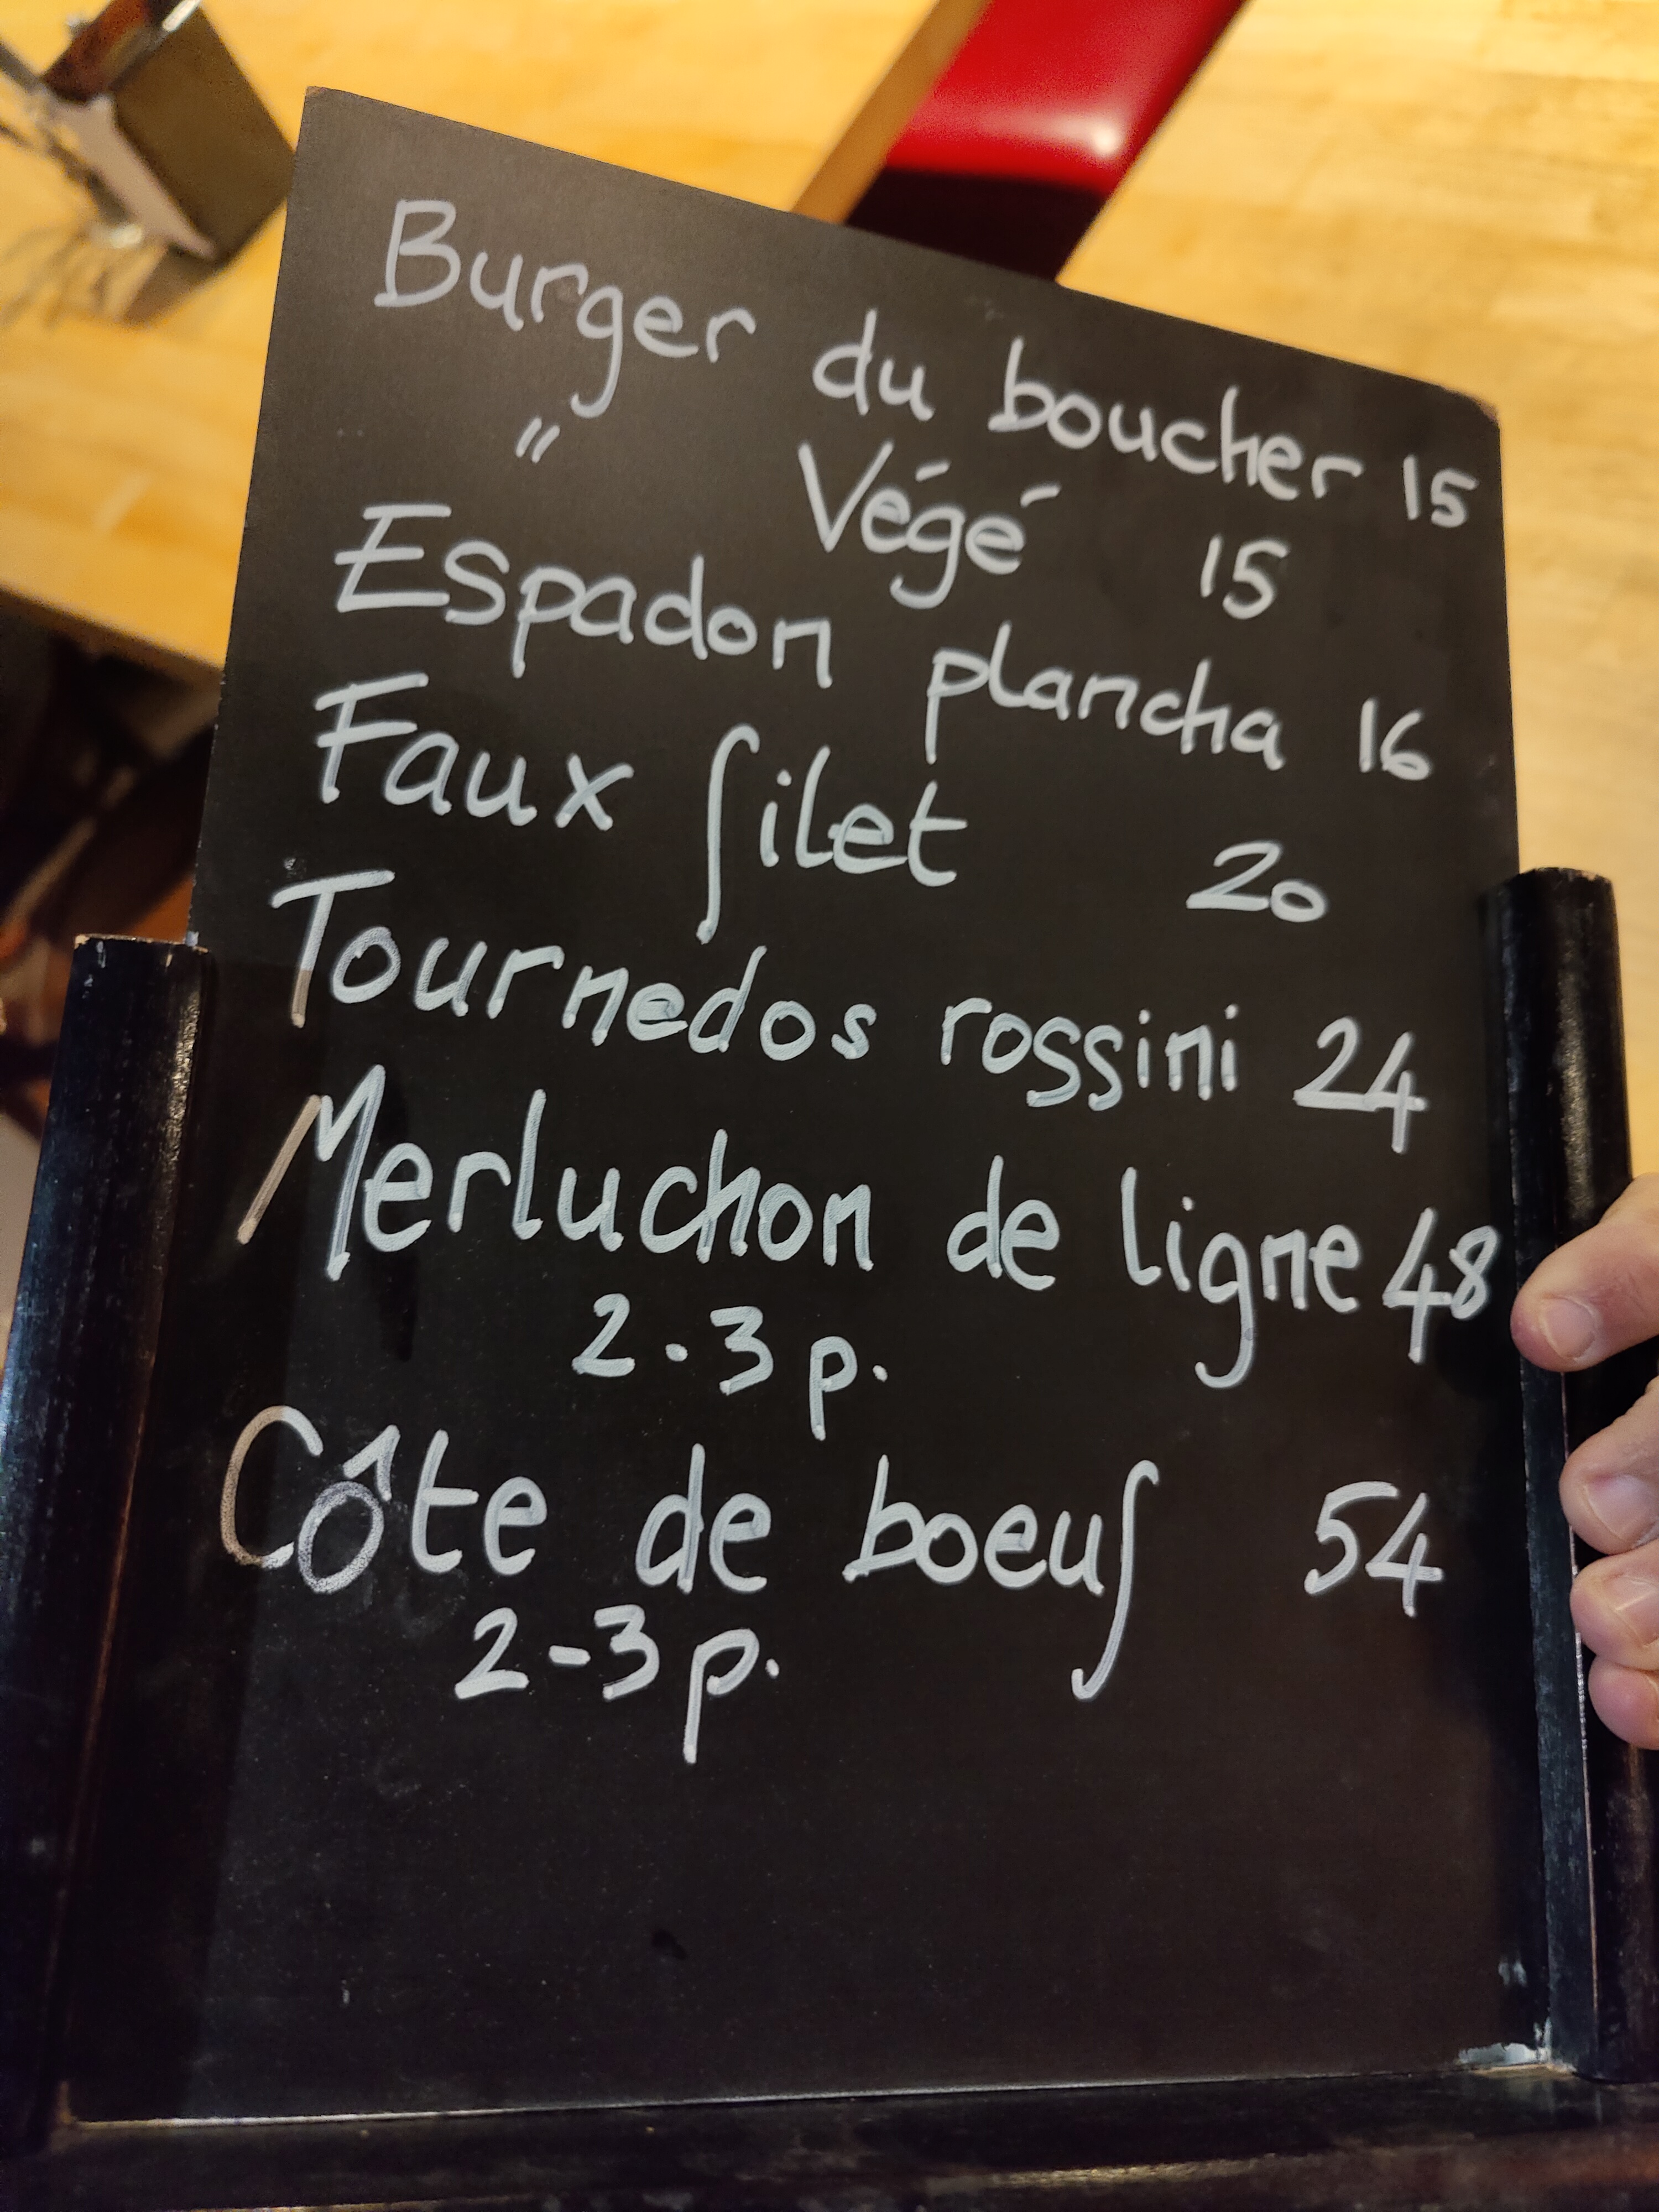 Burger du boucher 15
" Végé 15
Espadon plancha 16
Faux filet 20
Tournedos rossini 24
Merluchon de ligne 48
2.3 p.
Côte de boeuf 54
2-3 p.